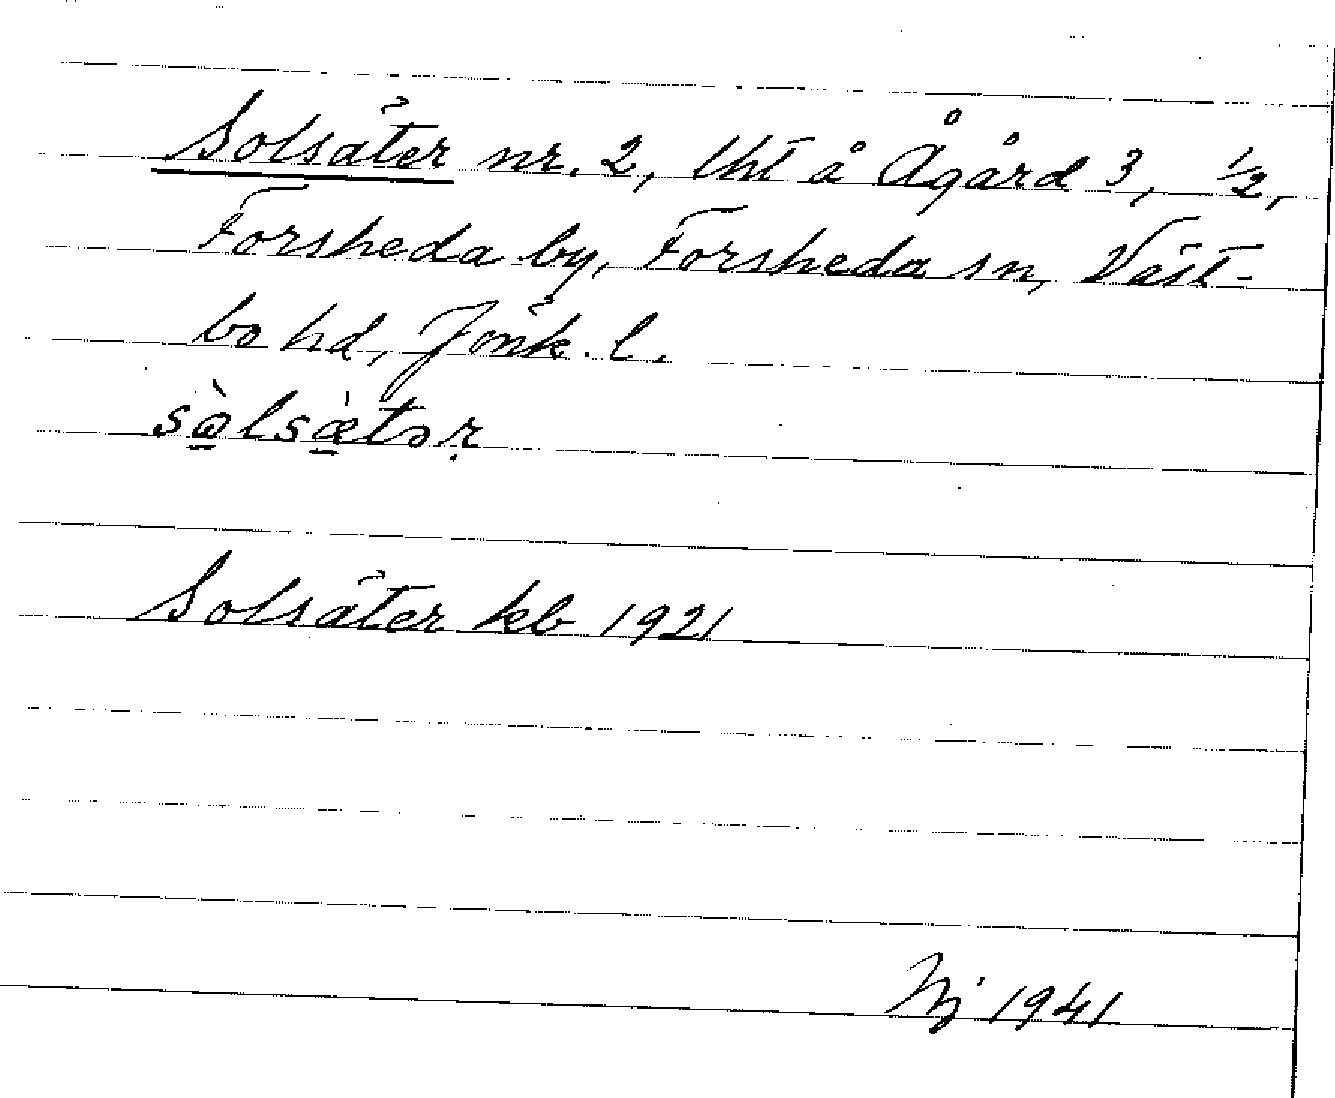 Solsäter nr. 2, lht å Ågård 3, ½,
Forsheda by, Forsheda sn, Väst-
bo hd, Jönk. l.
Solsäter kb 1921
1941